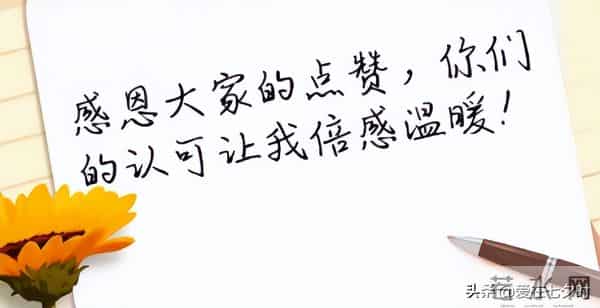 感恩大家的点赞，你们
的认可让我倍感温暖！
头条@爱在七夕时